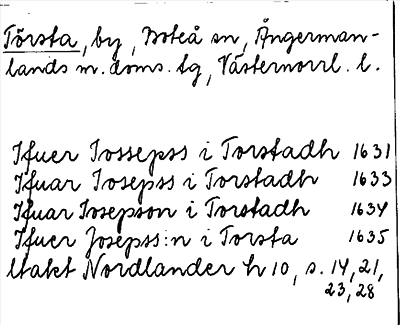 Torsta, by, Boteå sn, Ångerman-
lands m. doms. tg, Västernorrl. l.
Ifuer Iossepss i Torstadh 1631
Ifuar Iosepss i Torstadh 1633
Ifuar Iosepson i Torstadh 1634
Ifuer Josepss:n i Torsta 1635
ltakt Nordlander h 10, s. 14, 21,
23, 28